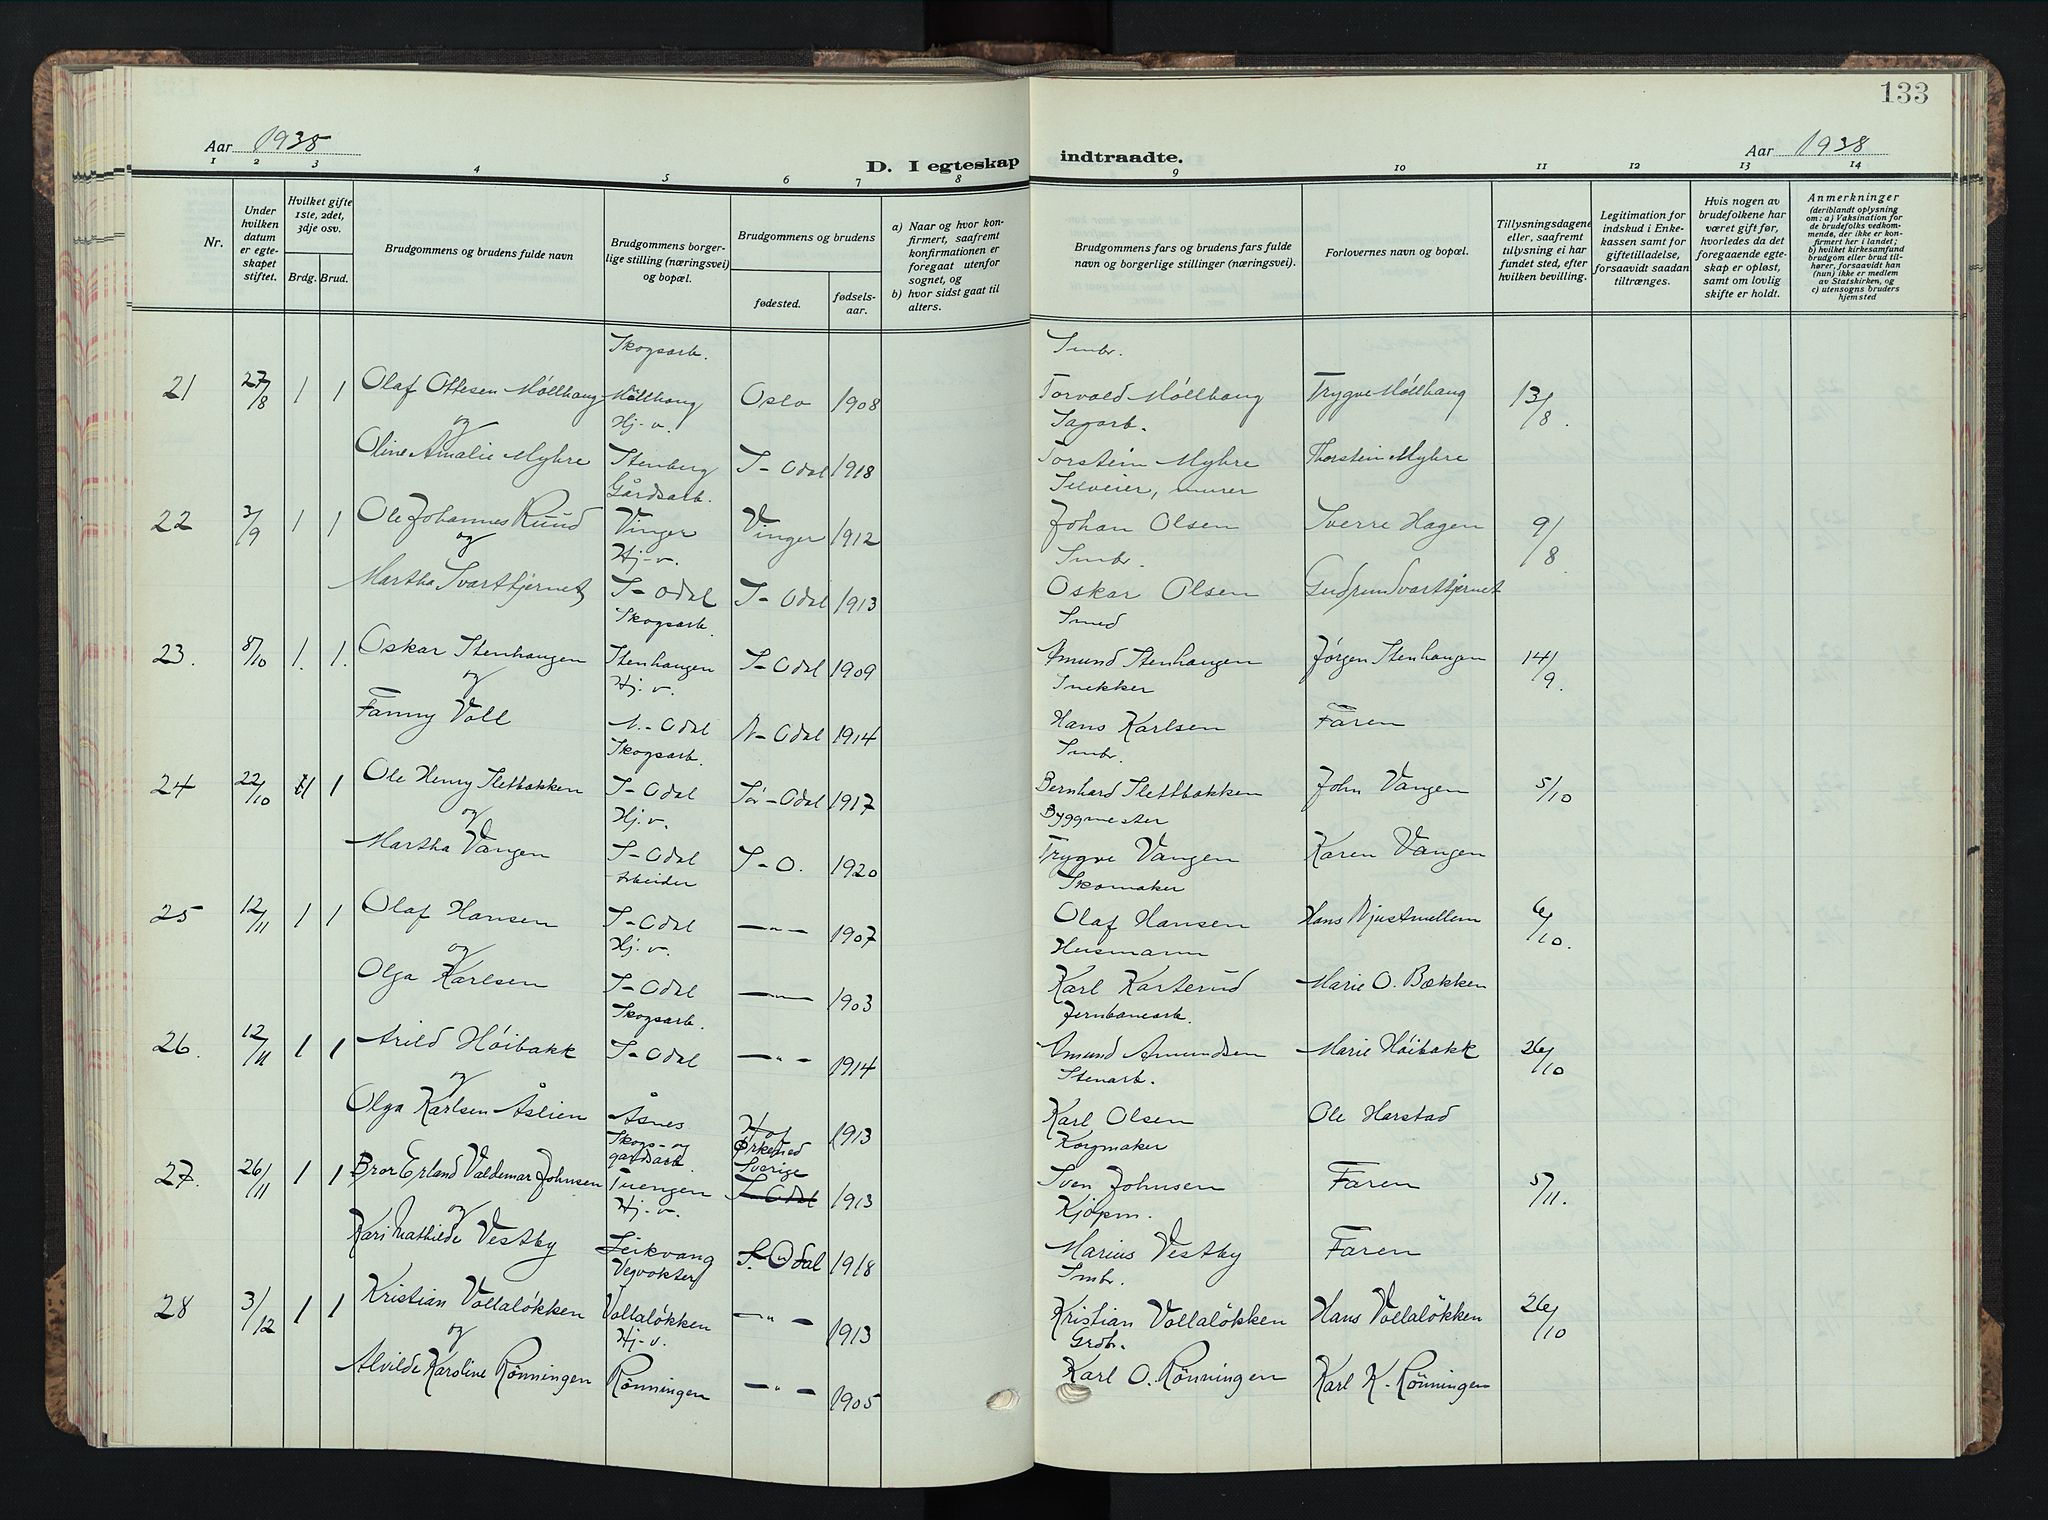 133
Aar 1938
D. I egteskap indtraadte.
Aar 1938
1 2 3 4 5 6 7 8 9 10 11 12 13 14
Nr.
Under hvilken datum er egteskapet stiftet.
Hvilket gifte 1ste, 2det, 3dje osv.
Brdg. Brud.
Brudgommens og brudens fulde navn
Brudgommens borgerlige stilling (næringsvei) og bopæl.
Brudgommens og brudens
fødested.
fødselsaar.
a) Naar og hvor konfirmert, saafremt konfirmationen er foregaat utenfor sognet, og
b) hvor sidst gaat til alters.
Brudgommens fars og brudens fars fulde navn og borgerlige stillinger (næringsvei).
Forlovernes navn og bopæl.
Tillysningsdagene eller, saafremt tillysning ei har fundet sted, efter hvilken bevilling.
Legitimation for indskud i Enkekassen samt for giftetilladelse, forsaavidt saadan tiltrænges.
Hvis nogen av brudefolkene har været gift før, hvorledes da det foregaaende egteskap er opløst, samt om lovlig skifte er holdt.
Anmerkninger (deriblandt oplysning om: a) Vaksination for de brudefolks vedkommende, der ikke er konfirmert her i landet; b) hvilket kirkesamfund brudgom eller brud tilhører, forsaavidt han (nun) ikke er medlem av Statskirken, og c) utensogns bruders hjemsted
Skogsarb. Smbr.
21 27/8 1 1 Olaf Ottesen Møllhaug Møllhaug Oslo 1908 Torvald Møllhaug Trygve Møllhaug 13/8.
og Hj-v. Sagarb.
Oline Amalie Myhre Stenberg S-Odal 1918 Torstein Myhre Thorstein Myhre
Gårdsarb. Selveier, murer
22 3/9 1 1 Ole Johannes Ruud Vinger Vinger 1912 Johan Olsen Sverre Hagen 9/8.
og Hj-v. Smbr.
Martha Svarttjernet S-Odal S-Odal 1913 Oskar Olsen Gudrun Svarttjernet
Skogsarb. Smed
23. 8/10 1. 1. Oskar Stenhaugen Stenhaugen S-Odal 1909 Amund Stenhaugen Jørgen Stenhaugen 14/9.
og Hj.v. Snekker
Fanny Voll N.-Odal N-Odal 1914 Hans Karlsen Faren
Skogsarb. Smbr.
24 22/10 1 1 Ole Henry Sletbakken S-Odal Sør-Odal 1917 Bernhard Slettbakken John Vangen 5/10
og Hj.v. Byggmester
Martha Vangen S-Odal S-O. 1920 Trygve Vangen Karen Vangen
Arbeider Skomaker
25 12/11 1 1 Olaf Hansen S-Odal —"— 1907 Olaf Hansen Hans 6/10.
og Hj.v. Husmann
Olga Karlsen S-Odal —"— 1903 Karl Karterud Marie O. Bækken
Skogsarb. Jernbanearb.
26. 12/11 1 1 Arild Høibakk S-Odal —"— 1914 Amund Amundsen Marie Høibakk 26/10
og Stenarb.
Olga Karlsen Åslien Åsnes Hof 1913 Karl Olsen Ole Harstad
Skogs- og gardsarb. Ørkened Sverige Korgmaker
27. 26/11 1 1 Bror Erland Valdemar Johnsen Tuengen S-Odal 1913 Sven Johnsen Faren 5/11.
og Hj-v. Kjøpm.
Kari Mathilde Vestby Leikvang S.Odal 1918 Marius Vestby Faren
Veivokter Smbr.
28 3/12 1 1 Kristian Vollaløkken Vollaløkken —"— 1913 Kristian Vollaløkken Hans Vollaløkken 26/10
og Hj-v. Grdbr.
Alvilde Karoline Rønningen Rønningen —"— 1905 Karl O. Rønningen Karl K. Rønningen